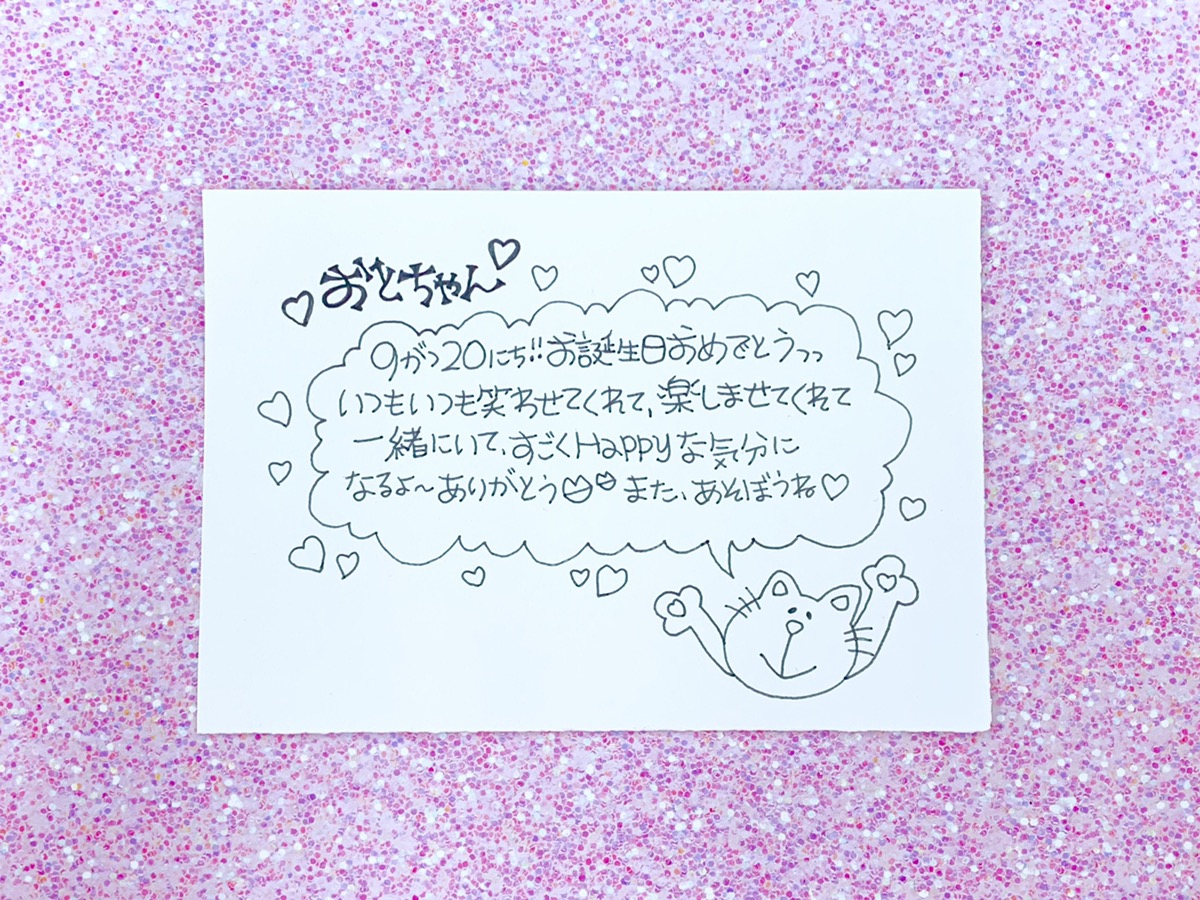 おとちゃん
9がつ20にち!!お誕生日おめでとうっっ
いつもいつも笑わせてくれて、楽しませてくれて
一緒にいて、すごくHappyな気分に
なるよ〜ありがとう また、あそぼうね♡